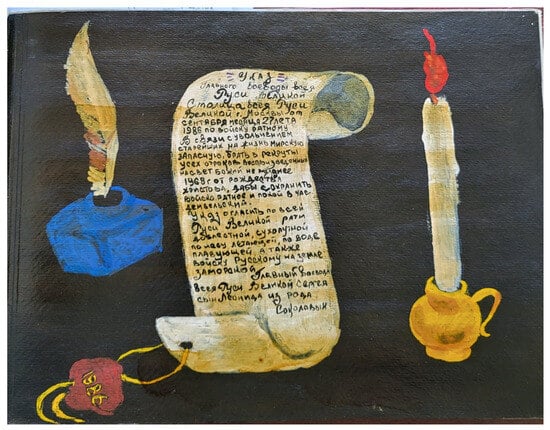 = УКАЗ =
Главного воеводы всея
Руси Великой
Столица всея Руси
Великой г. Москвы от
сентября месяца 27 лета
1986 по войску ратному
В связи с увольнением
старейших на жизнь мирскую
запасную, брать в рекруты
усех отроков, воспроизведенных
на свет божий не позднее
1968 г от рождества
христова, дабы сохранить
войско ратное и покой в
Указ огласить по всей
Руси Великой рати
доблестной, сухопутной
по небу летающей, по воде
плавующей, а также
войску Русскому на земле
заморской. Главный воевода
Всея Руси Великой Сергей
сын Леонида из рода
Соколовых
1986